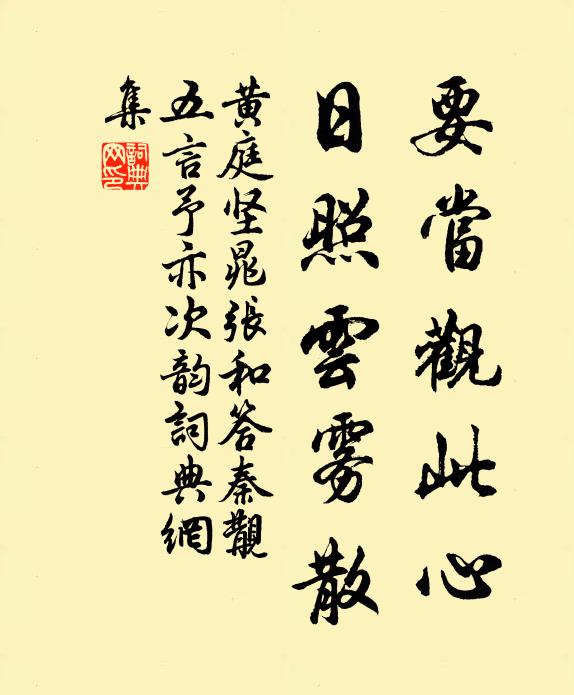 要當觀此心
日照雲雾散
黄庭坚晁張和答秦觀
五言予亦次韵詞典網
集
詞典
网印